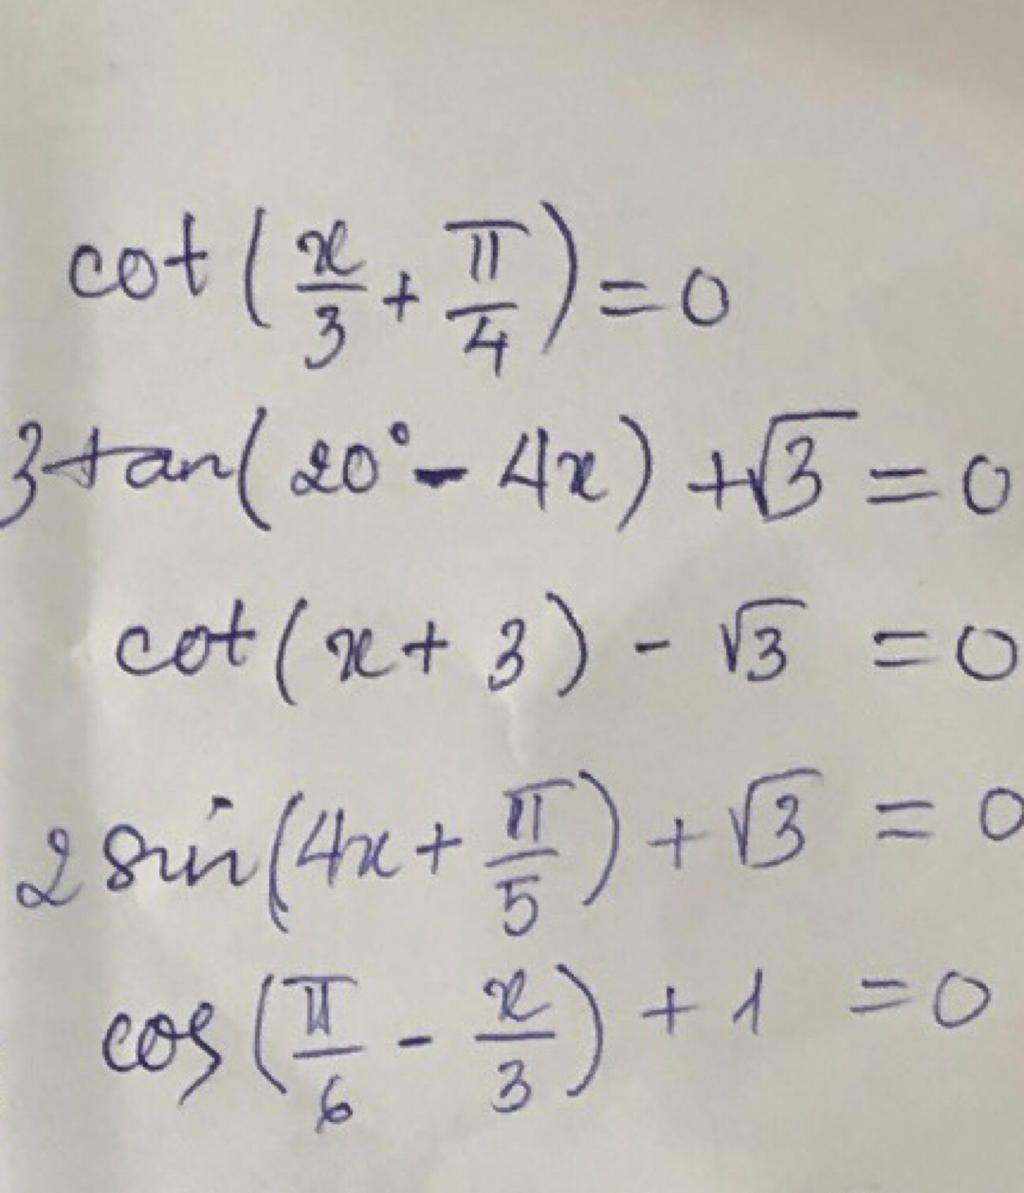 cot(x/3 + π/4) = 0
3tan(20° - 4x) + √3 = 0
cot(x + 3) - √3 = 0
2 sin(4x + π/5) + √3 = 0
cos(π/6 - x/3) + 1 = 0